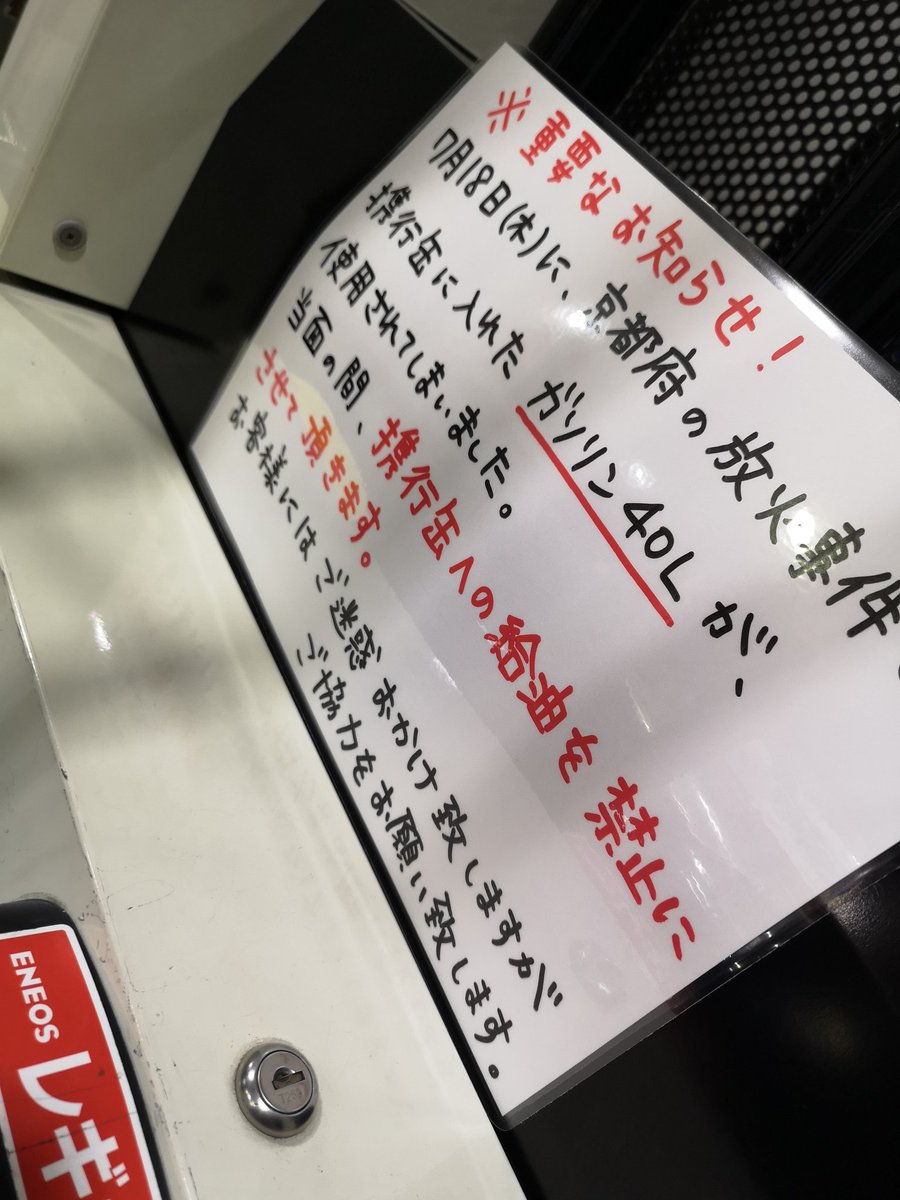 ※重要なお知らせ！
7月18日(木)に、京都府の放火事件
携行缶に入れた ガソリン40Lが、
使用されてしまいました。
当面の間、携行缶への給油を禁止に
させて頂きます。
お客様にはご迷惑おかけ致しますが
ご協力をお願い致します。
ENEOS
レギ